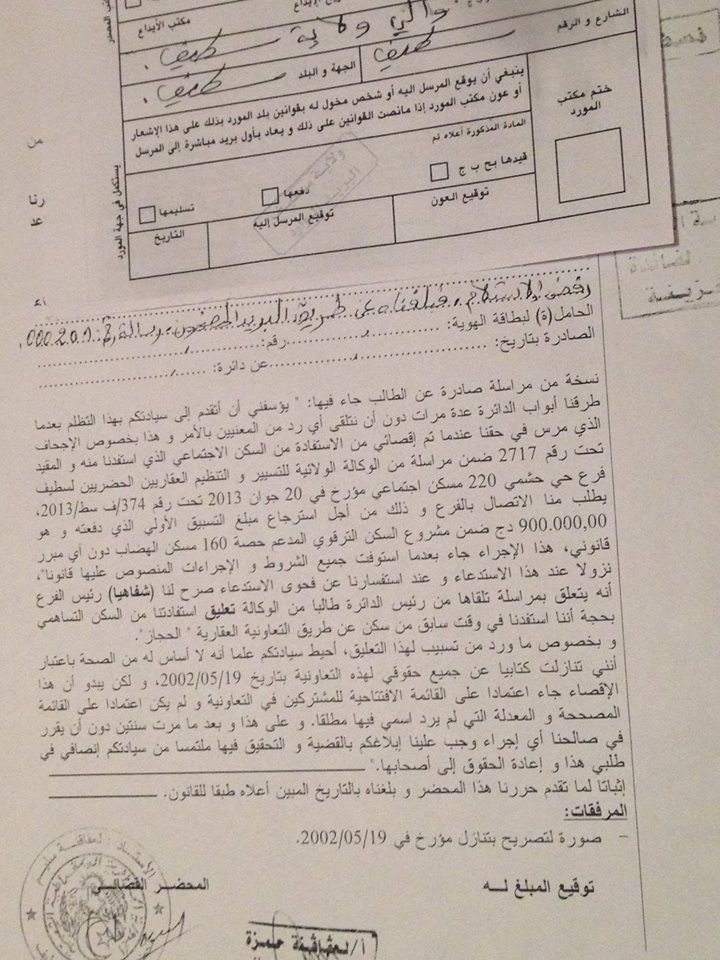 مكتب الأيداع
والي ولاية سطيف.
الشارع و الرقم
سطيف
الجهة و البلد
سطيف.
ختم مكتب المورد
ينبغي أن يوقع المرسل اليه أو شخص مخول له بقوانين بلد المورد بذلك على هذا الإشعار
أو عون مكتب المورد إذا مانصت القوانين على ذلك و يعاد بأول بريد مباشرة إلى المرسل
المادة المذكورة أعلاه تم
قيدها بح ب ج
دفعها
تسليمها
توقيع العون
توقيع المرسل إليه
التاريخ
يستكمل في جهة المورد
من
رنا
عد
رفض الاستلام، فبلغناه عن طريق البريد المضمون
الحامل(ة) لبطاقة الهوية: رقم:
الصادرة بتاريخ: عن دائرة:
نسخة من مراسلة صادرة عن الطالب جاء فيها: " يؤسفني أن أتقدم إلى سيادتكم بهذا التظلم بعدما
طرقنا أبواب الدائرة عدة مرات دون أن نتلقى أي رد من المعنيين بالأمر و هذا بخصوص الإجحاف
الذي مرس في حقنا عندما تم إقصائي من الاستفادة من السكن الاجتماعي الذي استفدنا منه و المقيد
تحت رقم 2717 ضمن مراسلة من الوكالة الولائية للتسيير و التنظيم العقاريين الحضريين لسطيف
فرع حي حشمي 220 مسكن اجتماعي مؤرخ في 20 جوان 2013 تحت رقم 374/ف سط/2013،
يطلب منا الاتصال بالفرع و ذلك من أجل استرجاع مبلغ التسبيق الأولي الذي دفعته و هو
900.000,00 دج ضمن مشروع السكن الترقوي المدعم حصة 160 مسكن الهضاب دون أي مبرر
قانوني، هذا الإجراء جاء بعدما استوفت جميع الشروط و الإجراءات المنصوص عليها قانونا"،
نزولا عند هذا الاستدعاء و عند استفسارنا عن فحوى الاستدعاء صرح لنا (شفاهيا) رئيس الفرع
أنه يتعلق بمراسلة تلقاها من رئيس الدائرة طالبا من الوكالة تعليق استفادتنا من السكن التساهمي
بحجة أننا استفدنا في وقت سابق من سكن عن طريق التعاونية العقارية " الحجاز".
و بخصوص ما ورد من تسبيب لهذا التعليق، أحيط سيادتكم علما أنه لا أساس له من الصحة باعتبار
أنني تنازلت كتابيا عن جميع حقوقي لهذه التعاونية بتاريخ 2002/05/19، و لكن يبدو أن هذا
الإقصاء جاء اعتمادا على القائمة الافتتاحية للمشتركين في التعاونية و لم يكن اعتمادا على القائمة
المصححة و المعدلة التي لم يرد اسمي فيها مطلقا. و على هذا و بعد ما مرت سنتين دون أن يقرر
في صالحنا أي إجراء وجب علينا إبلاغكم بالقضية و التحقيق فيها ملتمسا من سيادتكم إنصافي في
طلبي هذا و إعادة الحقوق إلى أصحابها."
إثباتا لما تقدم حررنا هذا المحضر و بلغناه بالتاريخ المبين أعلاه طبقا للقانون.
المرفقات:
– صورة لتصريح بتنازل مؤرخ في 2002/05/19.
توقيع المبلغ لــه
المحضر القضائي